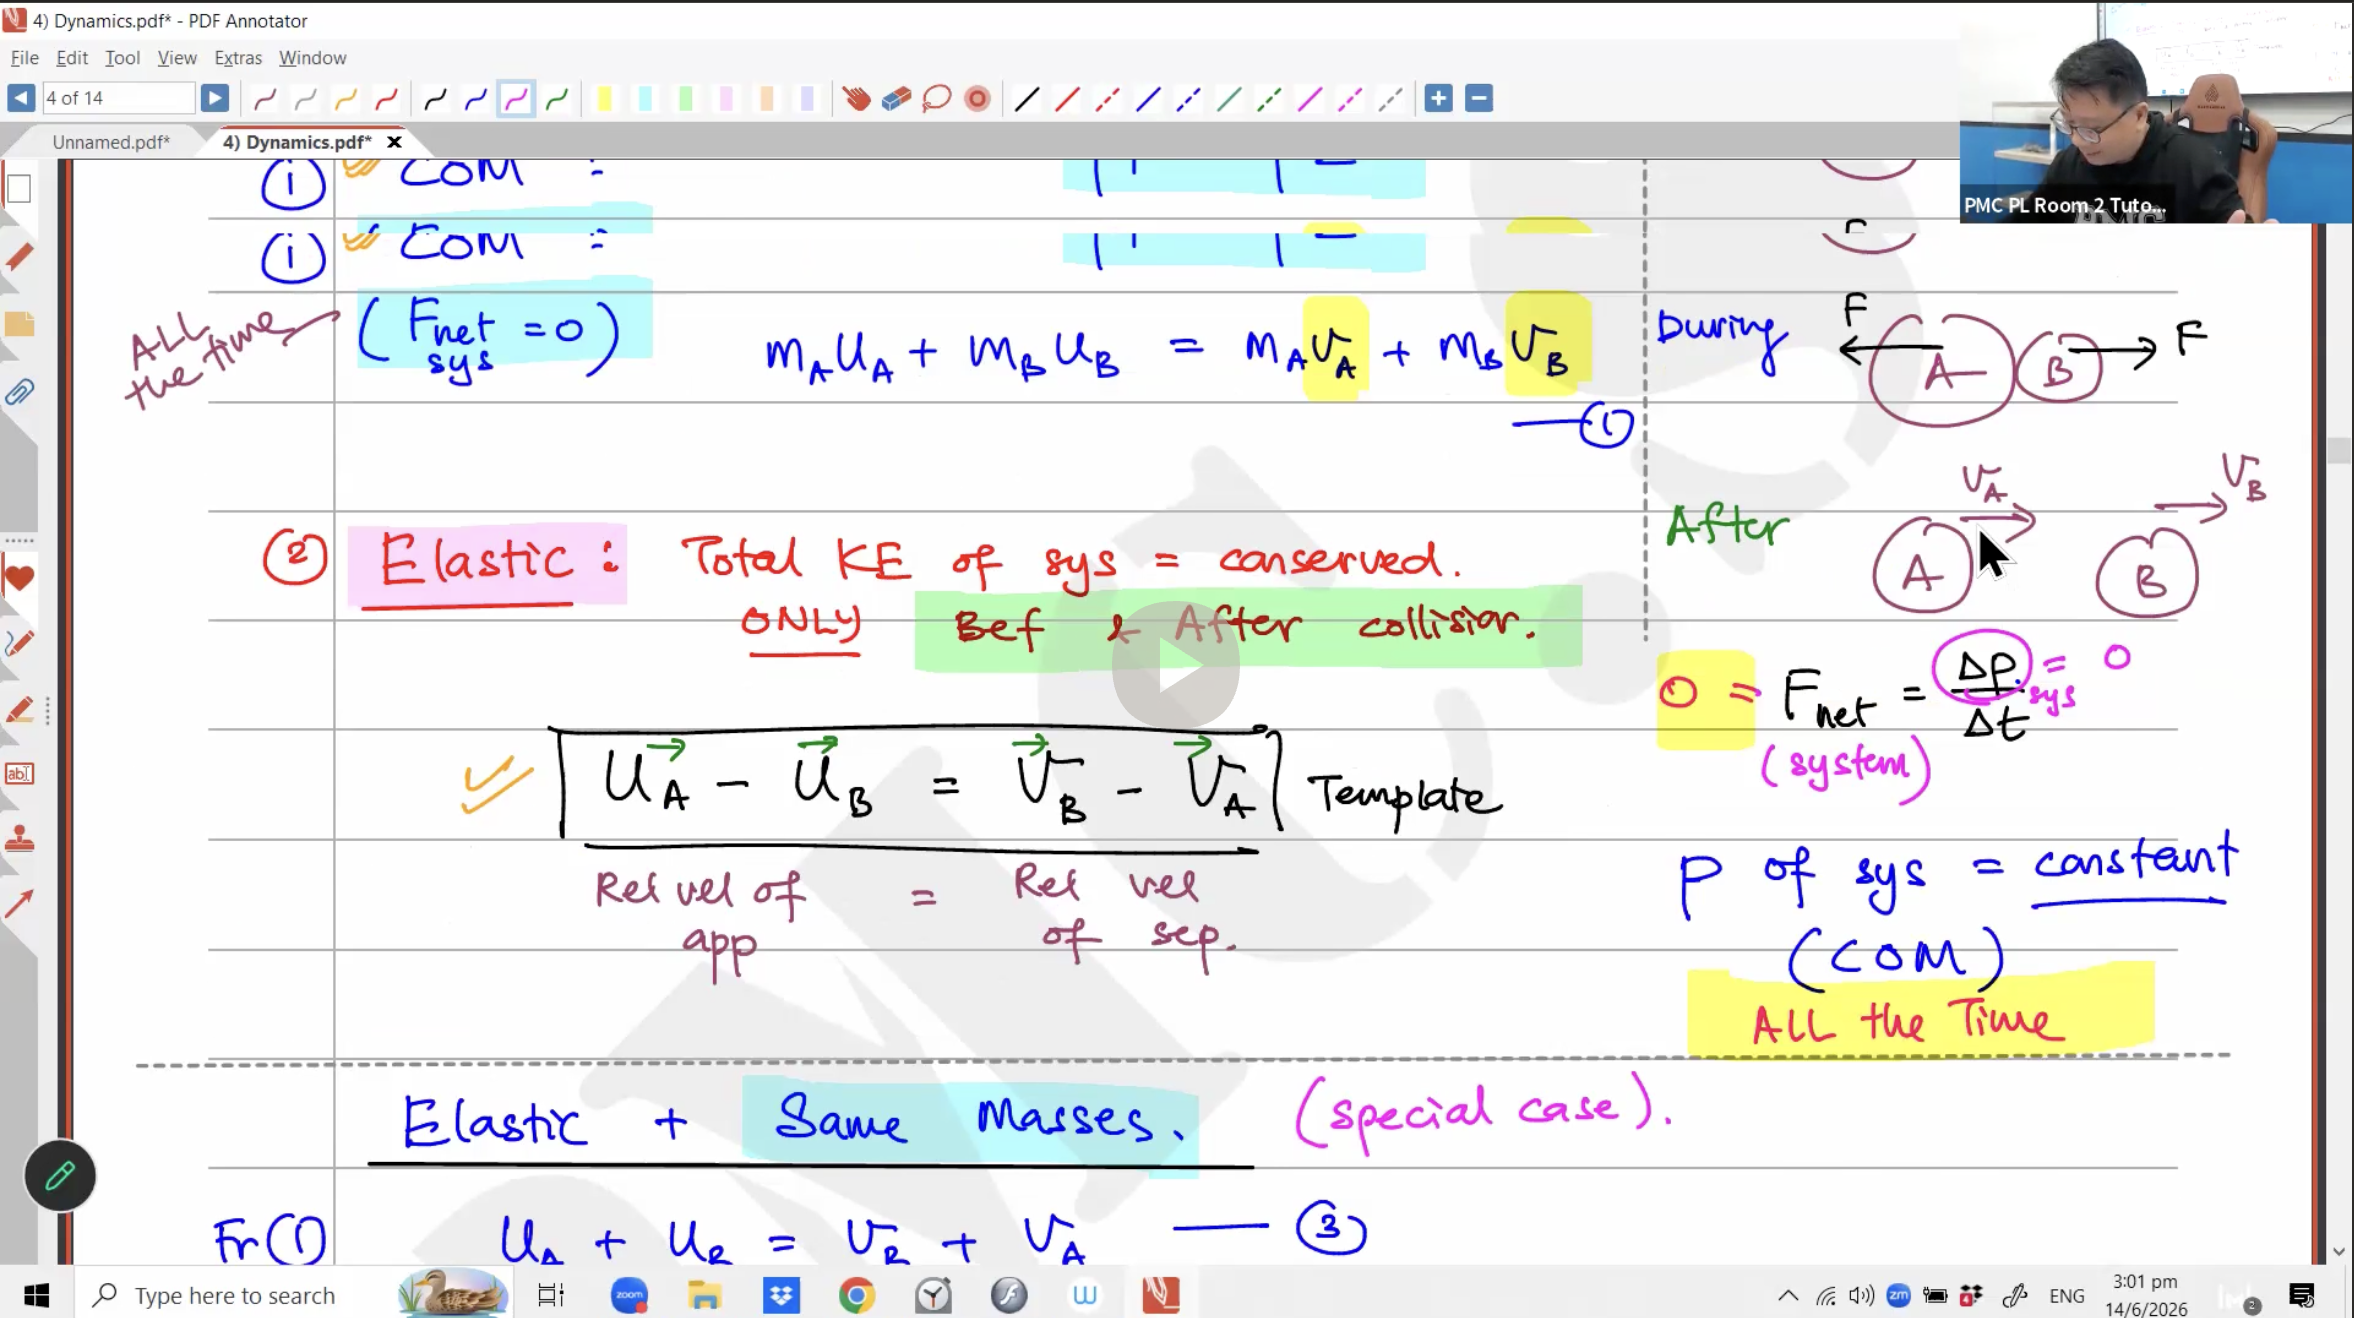 4) Dynamics.pdf* - PDF Annotator
File Edit Tool View Extras Window
4 of 14
Unnamed.pdf* 4) Dynamics.pdf* x
PMC PL Room 2 Tuto...
① COM :
① COM :
ALL the time
(Fnet sys = 0)
mAUA + mBUB = mAVA + mBVB
— ①
During
F A B F
After
VA VB
A B
② Elastic : Total KE of sys = conserved.
ONLY Bef & After collision.
0 = Fnet = Δp/Δt sys = 0
(system)
UA - UB = VB - VA Template
Rel vel of app = Rel vel of sep.
P of sys = constant
(COM)
ALL the Time
Elastic + Same Masses. (special case).
Fr(1) UA + UB = VB + VA — ③
Type here to search
zoom
zm
4
ENG
3:01 pm
14/6/2026
2